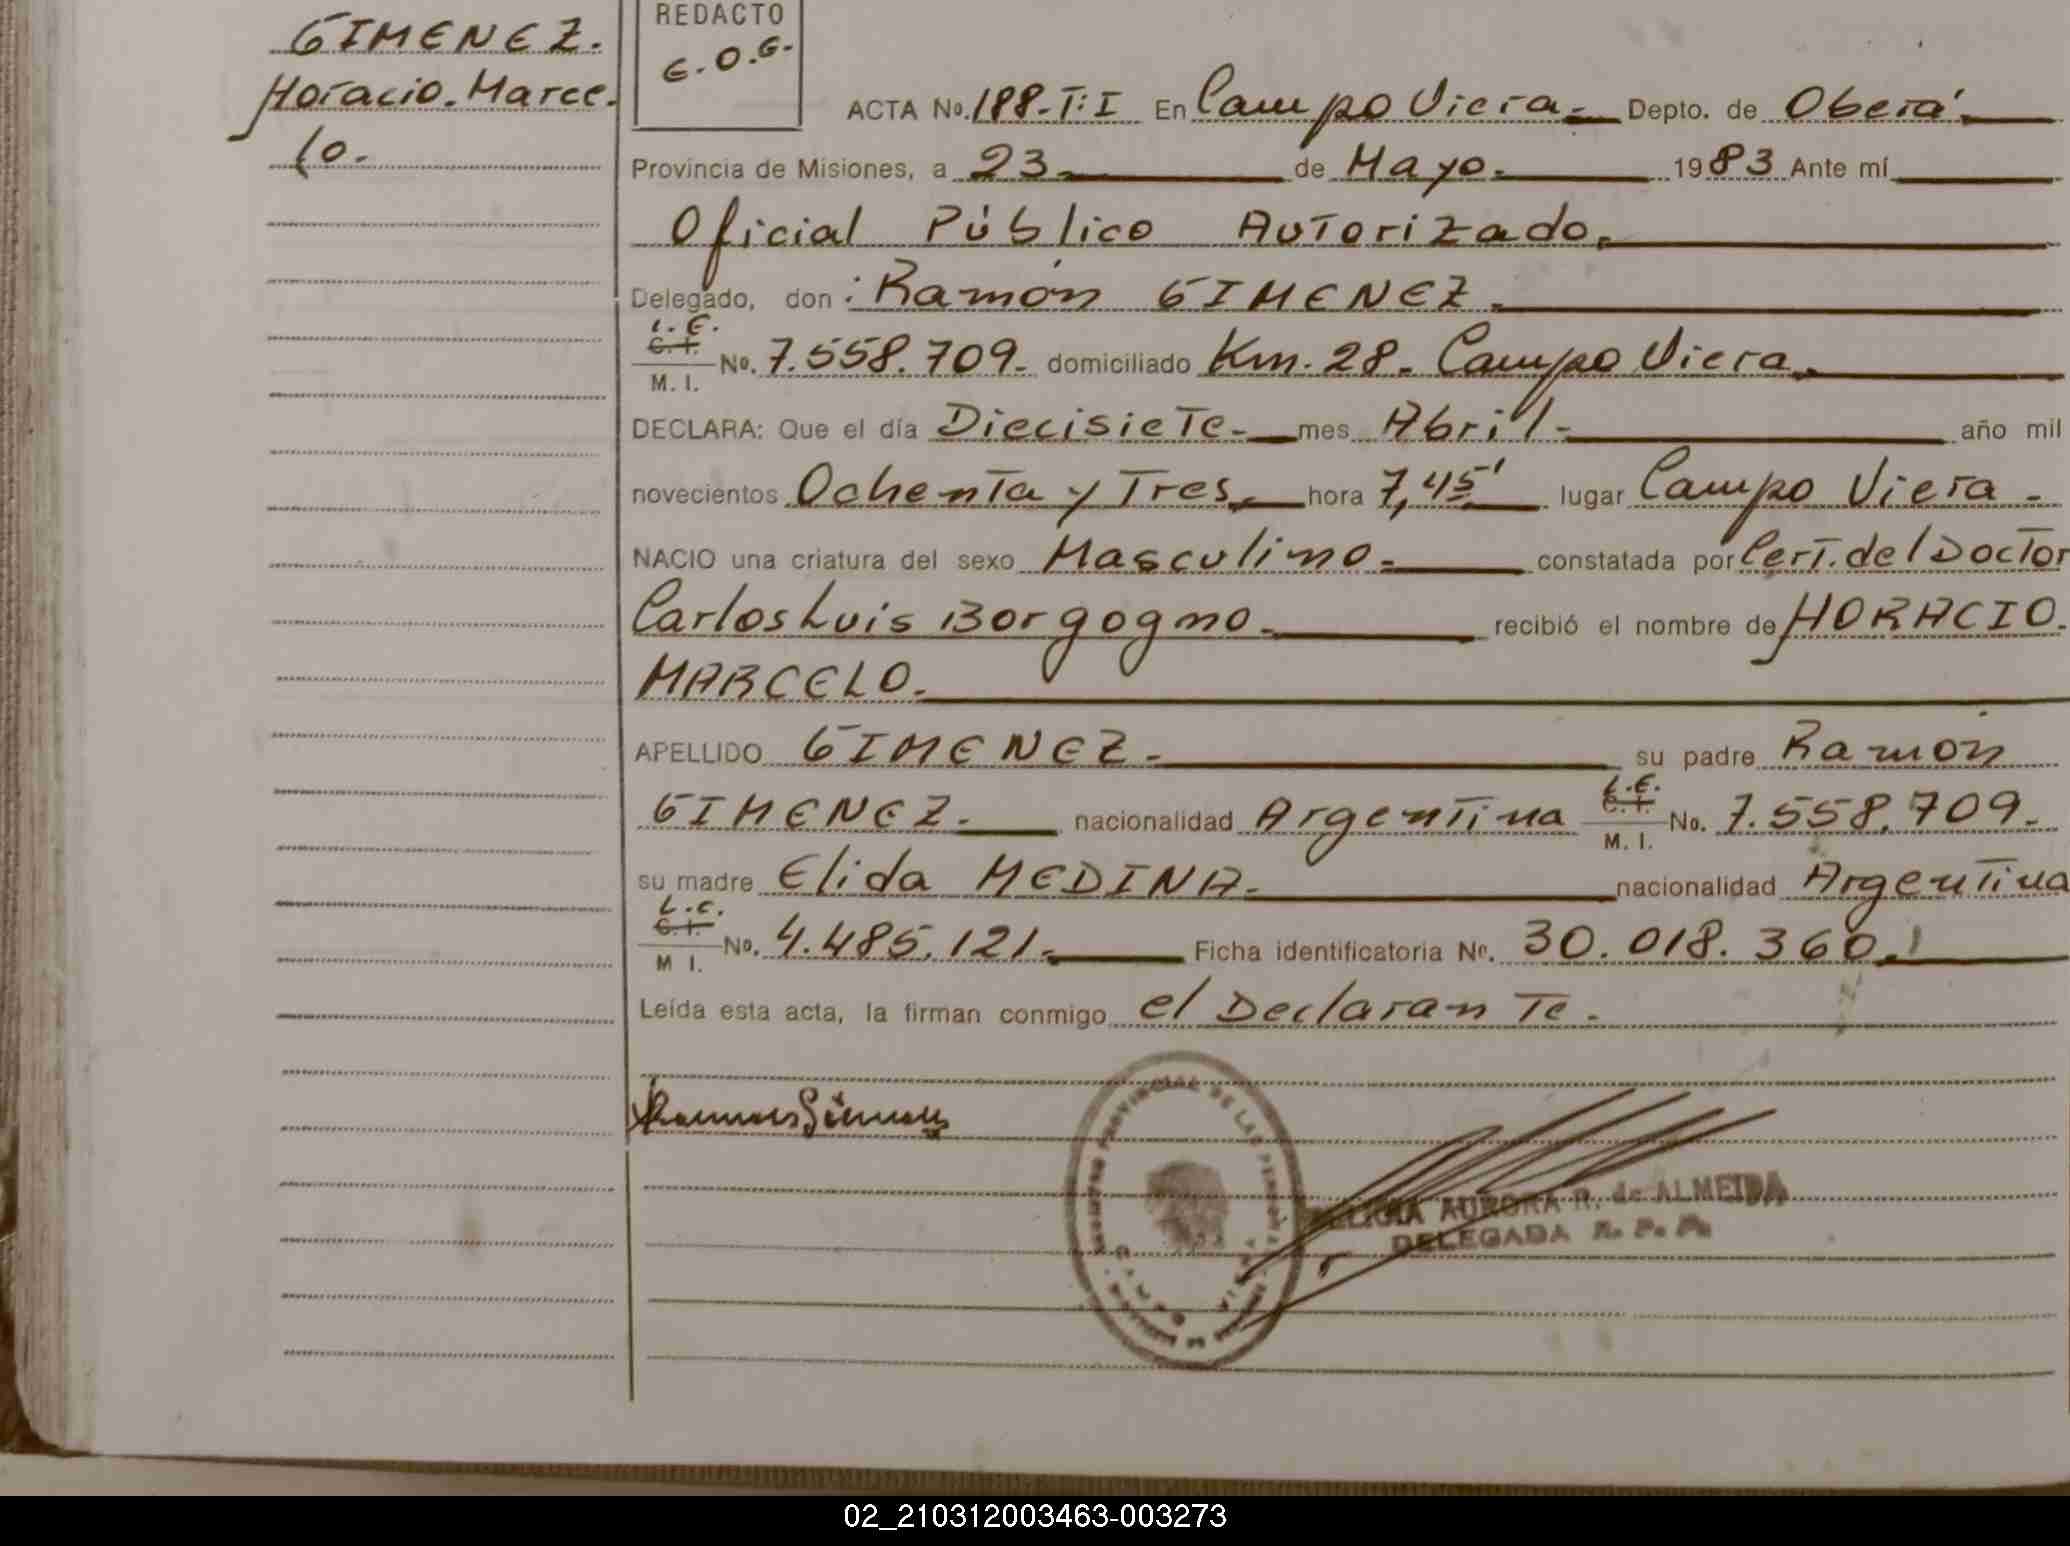 GIMENEZ.
Horacio. Marce.
lo.
REDACTO
E.O.G.
ACTA No. 188-T:I En Campo Viera. Depto. de Oberá.
Provincia de Misiones, a 23 de Mayo. 1983 Ante mí
Oficial Público Autorizado.
Delegado, don: Ramón GIMENEZ.
L.E.
C.I.
M.I.
No. 7.558.709. domiciliado Km. 28. Campo Viera.
DECLARA: Que el día Diecisiete. mes Abril. año mil
novecientos Ochenta y Tres, hora 7,45' lugar Campo Viera.
NACIO una criatura del sexo Masculino. constatada por Cert. del Doctor
Carlos Luis Borgogno. recibió el nombre de HORACIO.
MARCELO.
APELLIDO GIMENEZ. su padre Ramón
GIMENEZ. nacionalidad Argentina L.E. C.I. M.I. No. 7.558.709.
su madre Elida MEDINA. nacionalidad Argentina
L.C.
C.I.
M I.
No. 4.485.121. Ficha identificatoria No. 30.018.360.
Leída esta acta, la firman conmigo el Declarante.
PROVINCIAL DE LAS PERSONAS
CAMPO VIERA
FELICIA AURORA R. de ALMEIDA
DELEGADA R. P. P.
02_210312003463-003273